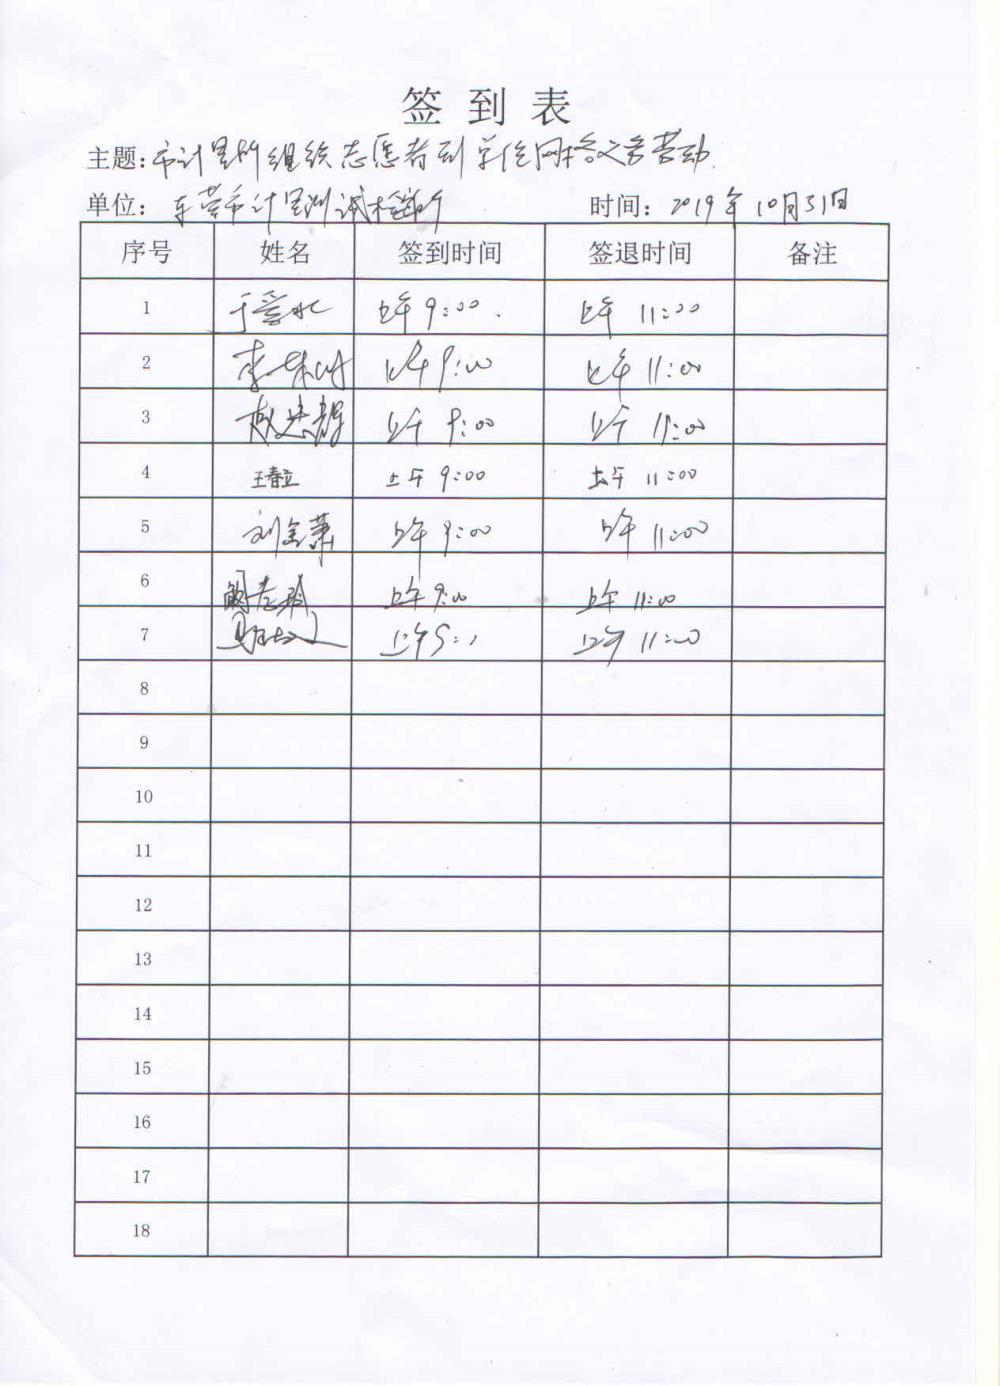 签到表
主题：市计量所组织志愿者到单位网格义务劳动
单位：东营市计量测试检定所 时间：2019年10月31日
序号 姓名 签到时间 签退时间 备注
1 上午9:00. 上午11:00
2 上午9:00 上午11:00
3 赵忠 上午9:00 上午11:00
4 王春立 上午9:00 上午11:00
5 刘金 上午9:00 上午11:00
6 上午9:00 上午11:00
7 上午 上午11:00
8
9
10
11
12
13
14
15
16
17
18